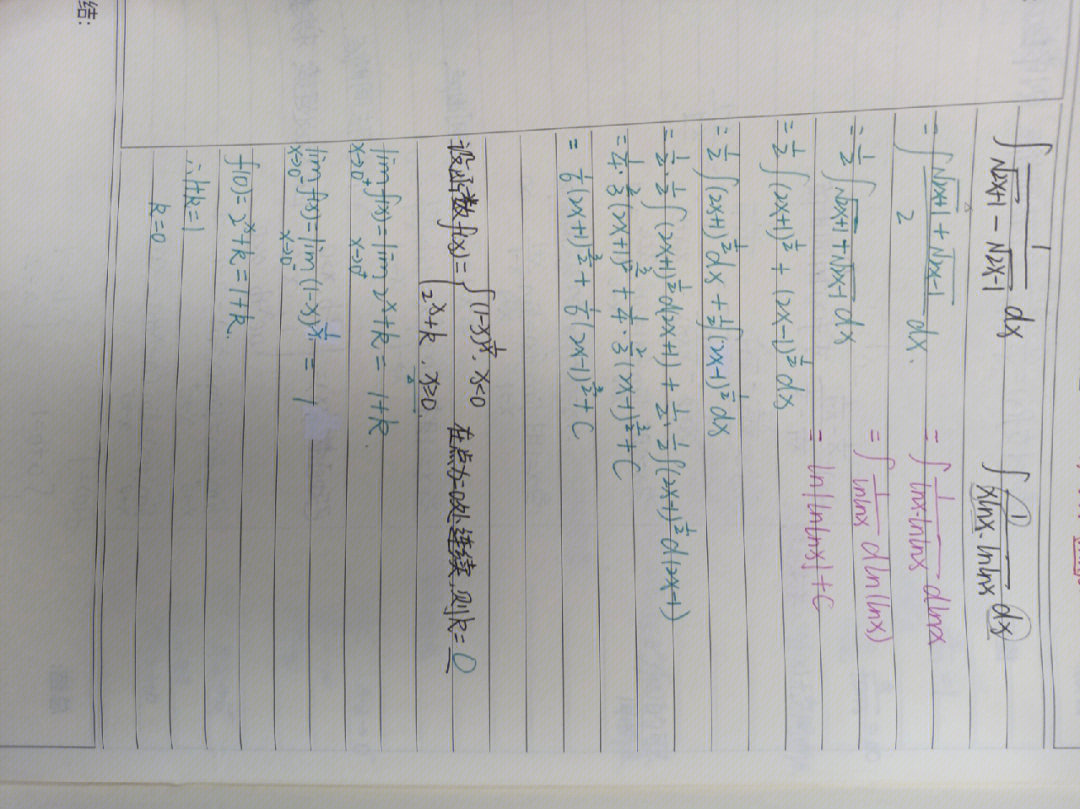 结:
∫ 1/(√(2x+1) - √(2x-1)) dx
= ∫ (√(2x+1) + √(2x-1))/2 dx.
= 1/2 ∫ √(2x+1) + √(2x-1) dx
= 1/2 ∫ (2x+1)^(1/2) + (2x-1)^(1/2) dx
= 1/2 ∫ (2x+1)^(1/2) dx + 1/2 ∫ (2x-1)^(1/2) dx
= 1/2 · 1/2 ∫ (2x+1)^(1/2) d(2x+1) + 1/2 · 1/2 ∫ (2x-1)^(1/2) d(2x-1)
= 1/4 · 2/3 (2x+1)^(3/2) + 1/4 · 2/3 (2x-1)^(3/2) + C
= 1/6 (2x+1)^(3/2) + 1/6 (2x-1)^(3/2) + C
∫ 1/(xlnx·lnlnx) dx
= ∫ 1/(lnx·lnlnx) dlnx
= ∫ 1/(lnlnx) dln(lnx)
= ln|lnlnx| + C
设函数f(x) = { (1-x)^(1/x), x<0
2^x+k, x≥0
在点x=0处连续,则k=0
lim x→0⁺ f(x) = lim x→0⁺ 2^x+k = 1+k
lim x→0⁻ f(x) = lim x→0⁻ (1-x)^(1/x) = 1
f(0) = 2^x+k = 1+k.
∴1+k=1
k=0